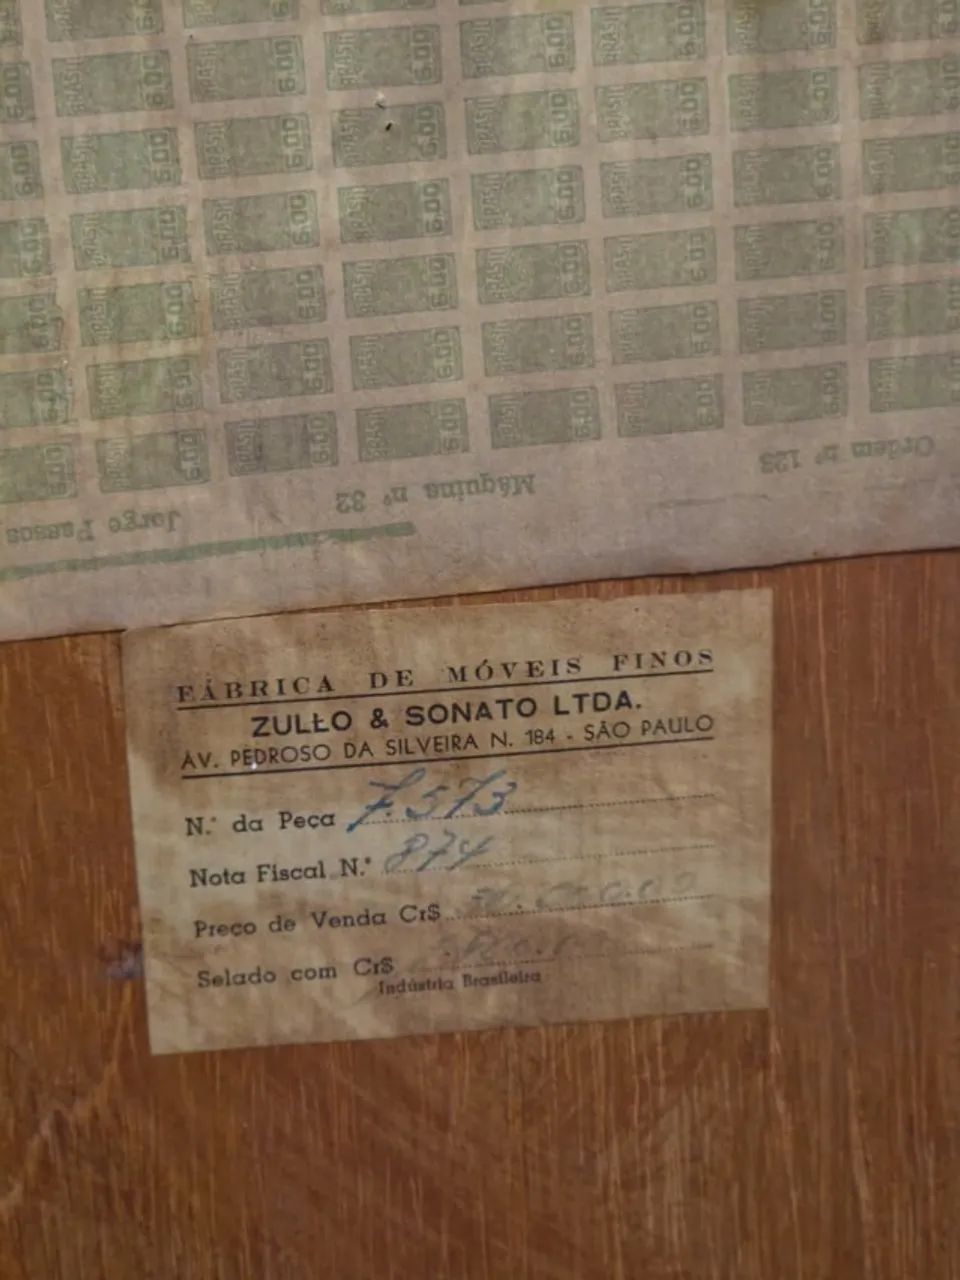 BRASIL 6.00
Jorge Passos
Máquina nº 32
Ordem nº 123
FÁBRICA DE MÓVEIS FINOS
ZULLO & SONATO LTDA.
AV. PEDROSO DA SILVEIRA N. 184 - SÃO PAULO
N.º da Peça 7.573
Nota Fiscal N.º 874
Preço de Venda Cr$
Selado com Cr$
Indústria Brasileira